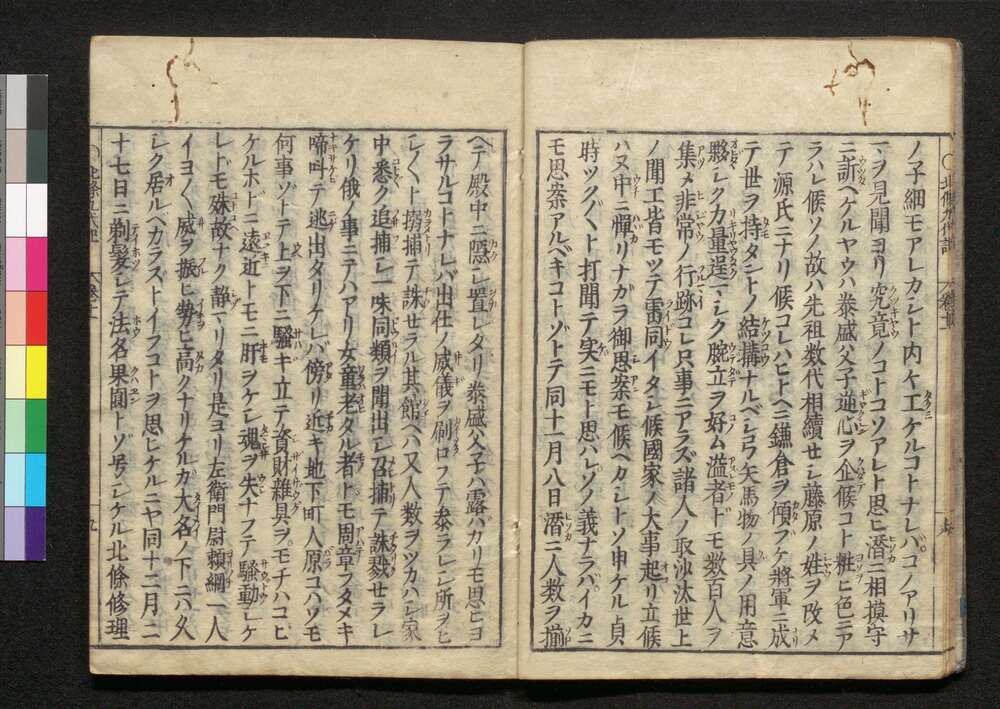 ノ子細モアレカシト内々工ケルコトナレバコノアリサ
マヲ見聞ヨリ究竟ノコトコソアレト思ヒ潜ニ相摸守
ニ訴ヘケルヤウハ泰盛父子逆心ヲ企候コト粧ヒ色ニア
ラハレ候ソノ故ハ先祖数代相續セシ藤原ノ姓ヲ改メ
テ源氏ニナリ候コレハヒトヘニ鎌倉ヲ傾ブケ將軍ニ成
テ世ヲ持タントノ結搆ナルベシ弓矢馬物ノ具ノ用意
夥シク力量逞マシク腕立ヲ好ム濫者ドモ数百人ヲ
集メ非常ノ行跡コレ只事ニアラズ諸人ノ取沙汰世上
ノ聞工皆モツテ雷同イタシ候國家ノ大事起リ立候
ハヌ中ニ憚リナガラ御思案モ候ヘカシトソ申ケル貞
時ツクヅクト打聞テ実ニモト思ハレソノ義ナラバイカニ
モ思案アルベキコトゾトテ同十一月八日潜ニ人数ヲ揃
ヘテ殿中ニ隠シ置レタリ泰盛父子ハ露バカリモ思ヒヨ
ラサルコトナレバ出仕ノ威儀ヲ刷ロフテ泰ラレシ所ヲヒ
シヒシト搦捕テ誅セラル其館ヘハ又人数ヲツカハシ家
中悉ク追捕シ一味同類ヲ聞出シ召捕テ誅戮セラレ
ケリ俄ノ事ニテハアリ女童老タル者トモ周章フタメキ
啼叫テ逃出タリケレバ傍リ近キ地下町人原コハソモ
何事ゾトテ上ヲ下ニ騒キ立テ資財雜具ヲモチハコビ
ケルホドニ遠近トモニ肝ヲケシ魂ヲ失ナフテ騒動シケ
レドモ殊故ナク静マリタリ是ヨリ左衛門尉頼綱一人
イヨイヨ威ヲ振ヒ勢ヒ高クナリケルガ大名ノ下ニハ久
シク居ルベカラズトイフコトヲ思ヒケルニヤ同十二月二
十七日ニ剃髪シテ法名果圓トゾ号シケル北條修理